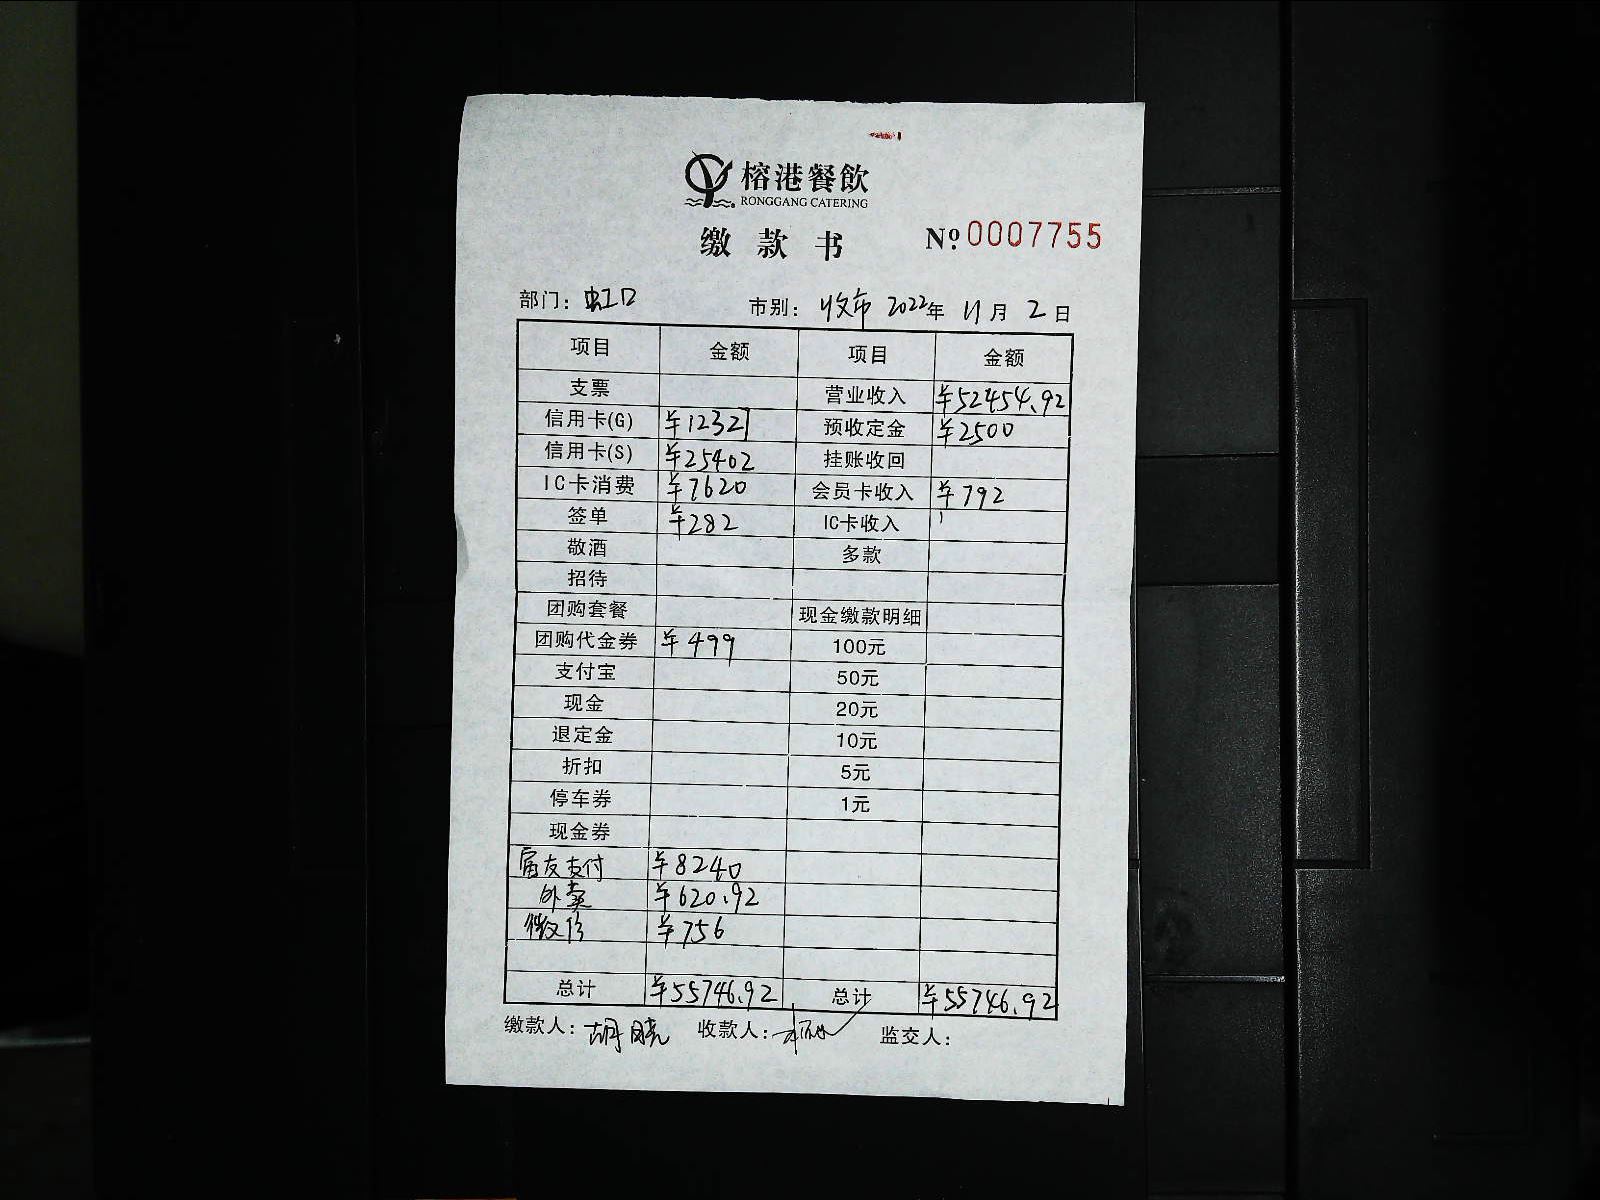 榕港餐飲
RONGGANG CATERING
缴款书 №0007755
部门：虹口 市别：收市 2022年 11月 2日
项目 金额 项目 金额
支票 营业收入 ¥52454.92
信用卡(G) ¥12327 预收定金 ¥2500
信用卡(S) ¥25402 挂账收回
IC卡消费 ¥7620 会员卡收入 ¥792
签单 ¥282 IC卡收入
敬酒 多款
招待
团购套餐 现金缴款明细
团购代金券 ¥499 100元
支付宝 50元
现金 20元
退定金 10元
折扣 5元
停车券 1元
现金券
富友支付 ¥8240
外卖 ¥620.92
微信 ¥756
总计 ¥55746.92 总计 ¥55746.92
缴款人：胡晓 收款人： 监交人：